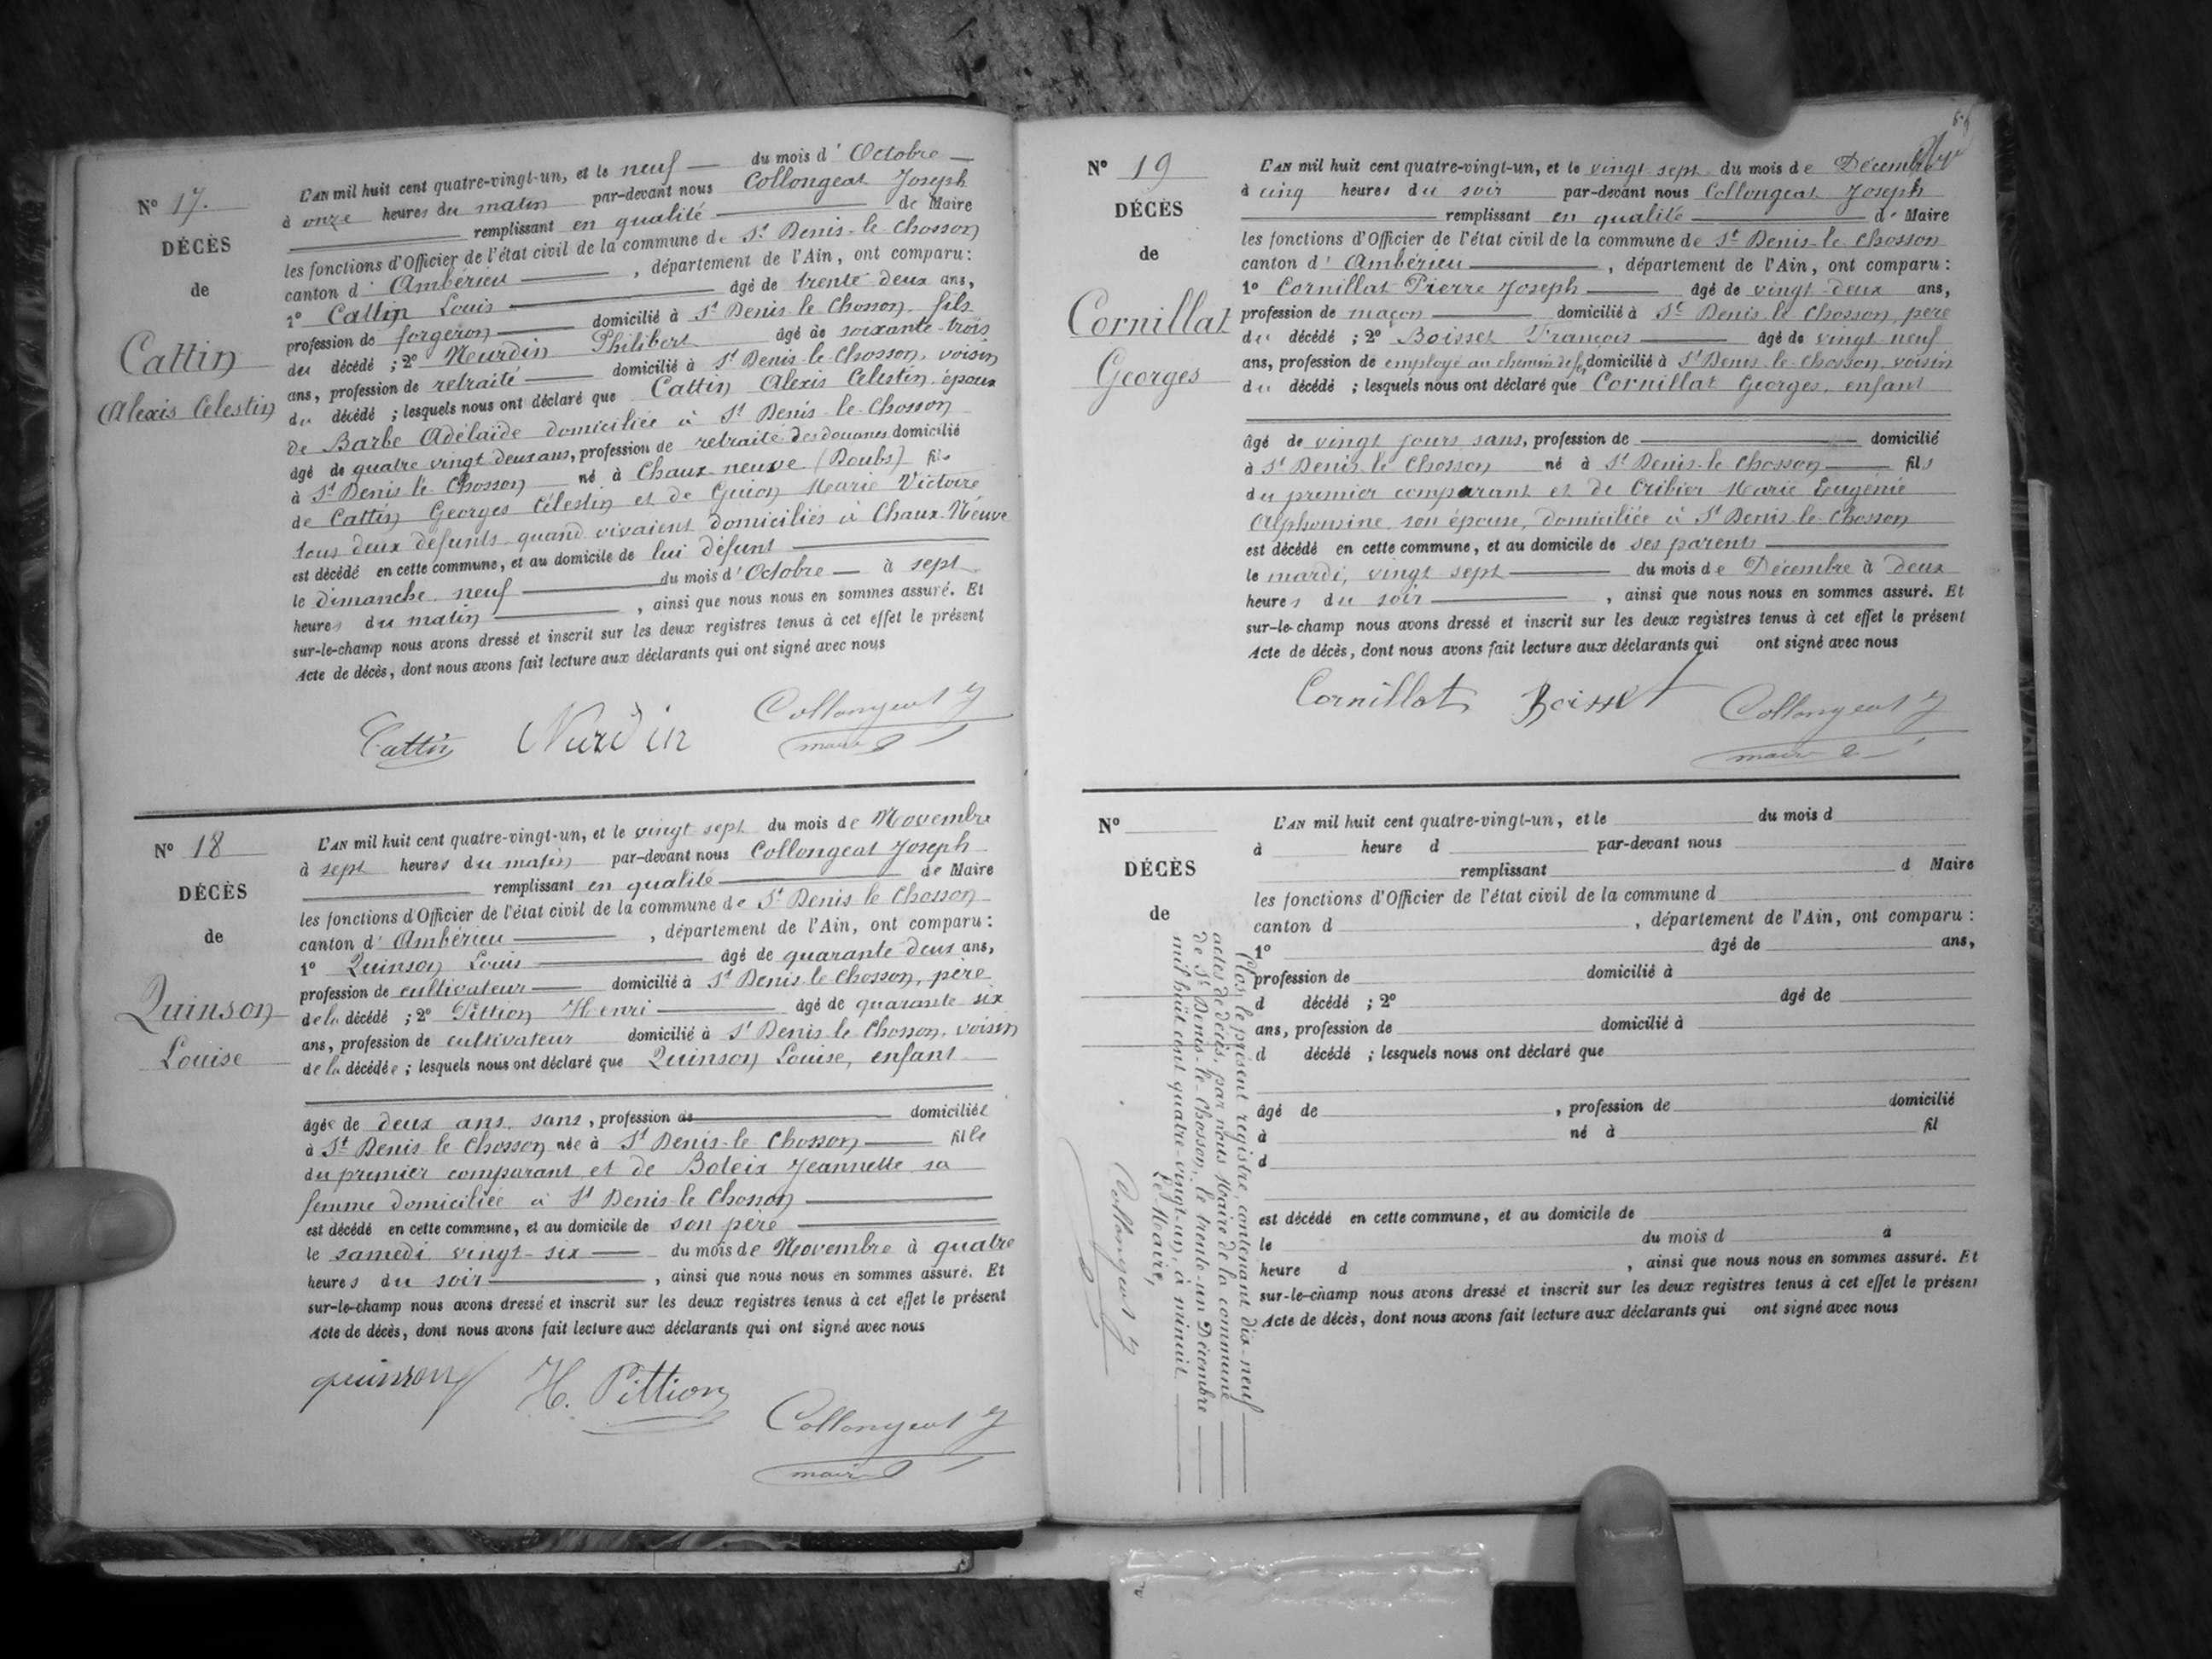 N° 17.
DÉCÈS
de
Cattin
Alexis Celestin
L'AN mil huit cent quatre-vingt-un, et le neuf du mois d' Octobre
à onze heures du matin par-devant nous Collongeat Joseph
remplissant en qualité de Maire
les fonctions d'Officier de l'état civil de la commune de St Denis-le-Chosson
canton d' Ambérieu , département de l'Ain, ont comparu :
1° Cattin Louis âgé de trente-deux ans,
profession de forgeron domicilié à St Denis-le-Chosson, fils
du décédé ; 2° Neurdin Philibert âgé de soixante-trois
ans, profession de retraité domicilié à St Denis-le-Chosson, voisin
du décédé ; lesquels nous ont déclaré que Cattin Alexis Celestin, époux
de Barbe Adélaïde domiciliée à St Denis-le-Chosson
âgé de quatre vingt deux ans, profession de retraité des douanes domicilié
à St Denis le Chosson né à Chaux-neuve (Doubs) fils
de Cattin Georges Célestin et de Guion Marie Victoire
tous deux défunts quand vivaient domiciliés à Chaux-Neuve
est décédé en cette commune, et au domicile de lui défunt
le dimanche neuf du mois d' Octobre à sept
heures du matin , ainsi que nous nous en sommes assuré. Et
sur-le-champ nous avons dressé et inscrit sur les deux registres tenus à cet effet le présent
Acte de décès, dont nous avons fait lecture aux déclarants qui ont signé avec nous
Cattin Nurdin Collongeat J
maire
N° 18
DÉCÈS
de
Quinson
Louise
L'AN mil huit cent quatre-vingt-un, et le vingt sept du mois de Novembre
à sept heures du matin par-devant nous Collongeat Joseph
remplissant en qualité de Maire
les fonctions d'Officier de l'état civil de la commune de St Denis-le Chosson
canton d' Ambérieu , département de l'Ain, ont comparu :
1° Quinson Louis âgé de quarante-deux ans,
profession de cultivateur domicilié à St Denis-le-Chosson, père
de la décédé ; 2° Pittion Henri âgé de quarante six
ans, profession de cultivateur domicilié à St Denis-le Chosson, voisin
de la décédée ; lesquels nous ont déclaré que Quinson Louise, enfant
âgée de deux ans, sans , profession de domiciliée
à St Denis le Chosson née à St Denis-le Chosson fille
du premier comparant et de Boteix Jeannette sa
femme domiciliée à St Denis-le Chosson
est décédé en cette commune, et au domicile de son père
le samedi vingt-six du mois de Novembre à quatre
heures du soir , ainsi que nous nous en sommes assuré. Et
sur-le-champ nous avons dressé et inscrit sur les deux registres tenus à cet effet le présent
Acte de décès, dont nous avons fait lecture aux déclarants qui ont signé avec nous
quinson H. Pittion
Collongeat J
maire
N° 19
DÉCÈS
de
Cornillat
Georges
L'AN mil huit cent quatre-vingt-un, et le vingt sept du mois de Décembre
à cinq heures du soir par-devant nous Collongeat Joseph
remplissant en qualité de Maire
les fonctions d'Officier de l'état civil de la commune de St Denis-le Chosson
canton d' Ambérieu , département de l'Ain, ont comparu :
1° Cornillat Pierre Joseph âgé de vingt-deux ans,
profession de maçon domicilié à St Denis-le Chosson, père
du décédé ; 2° Boisset François âgé de vingt neuf
ans, profession de employé au chemin de fe, domicilié à St Denis-le-Chosson, voisin
du décédé ; lesquels nous ont déclaré que Cornillat Georges, enfant
âgé de vingt jours sans, profession de domicilié
à St Denis-le Chosson né à St Denis-le Chosson fils
du premier comparant et de Cribier Marie Eugénie
Alphonsine, son épouse, domiciliée à St Denis-le-Chosson
est décédé en cette commune, et au domicile de ses parents
le mardi, vingt sept du mois de Décembre à deux
heures du soir , ainsi que nous nous en sommes assuré. Et
sur-le-champ nous avons dressé et inscrit sur les deux registres tenus à cet effet le présent
Acte de décès, dont nous avons fait lecture aux déclarants qui ont signé avec nous
Cornillat Boisset Collongeat J
maire
N°
DÉCÈS
de
L'AN mil huit cent quatre-vingt-un, et le du mois d
à heure d par-devant nous
remplissant d Maire
les fonctions d'Officier de l'état civil de la commune d
canton d , département de l'Ain, ont comparu :
1° âgé de ans,
profession de domicilié à
d décédé ; 2° âgé de
ans, profession de domicilié à
d décédé ; lesquels nous ont déclaré que
âgé de , profession de domicilié
à né à fil
d
est décédé en cette commune, et au domicile de
le du mois d à
heure d , ainsi que nous nous en sommes assuré. Et
sur-le-champ nous avons dressé et inscrit sur les deux registres tenus à cet effet le présent
Acte de décès, dont nous avons fait lecture aux déclarants qui ont signé avec nous
Clos, le présent registre, contenant dix-neuf
actes de décès, par nous Maire de la commune
de St Denis-le-Chosson, le trente-un Décembre
mil huit cent quatre-vingt-un, à minuit
Le Maire,
Collongeat J